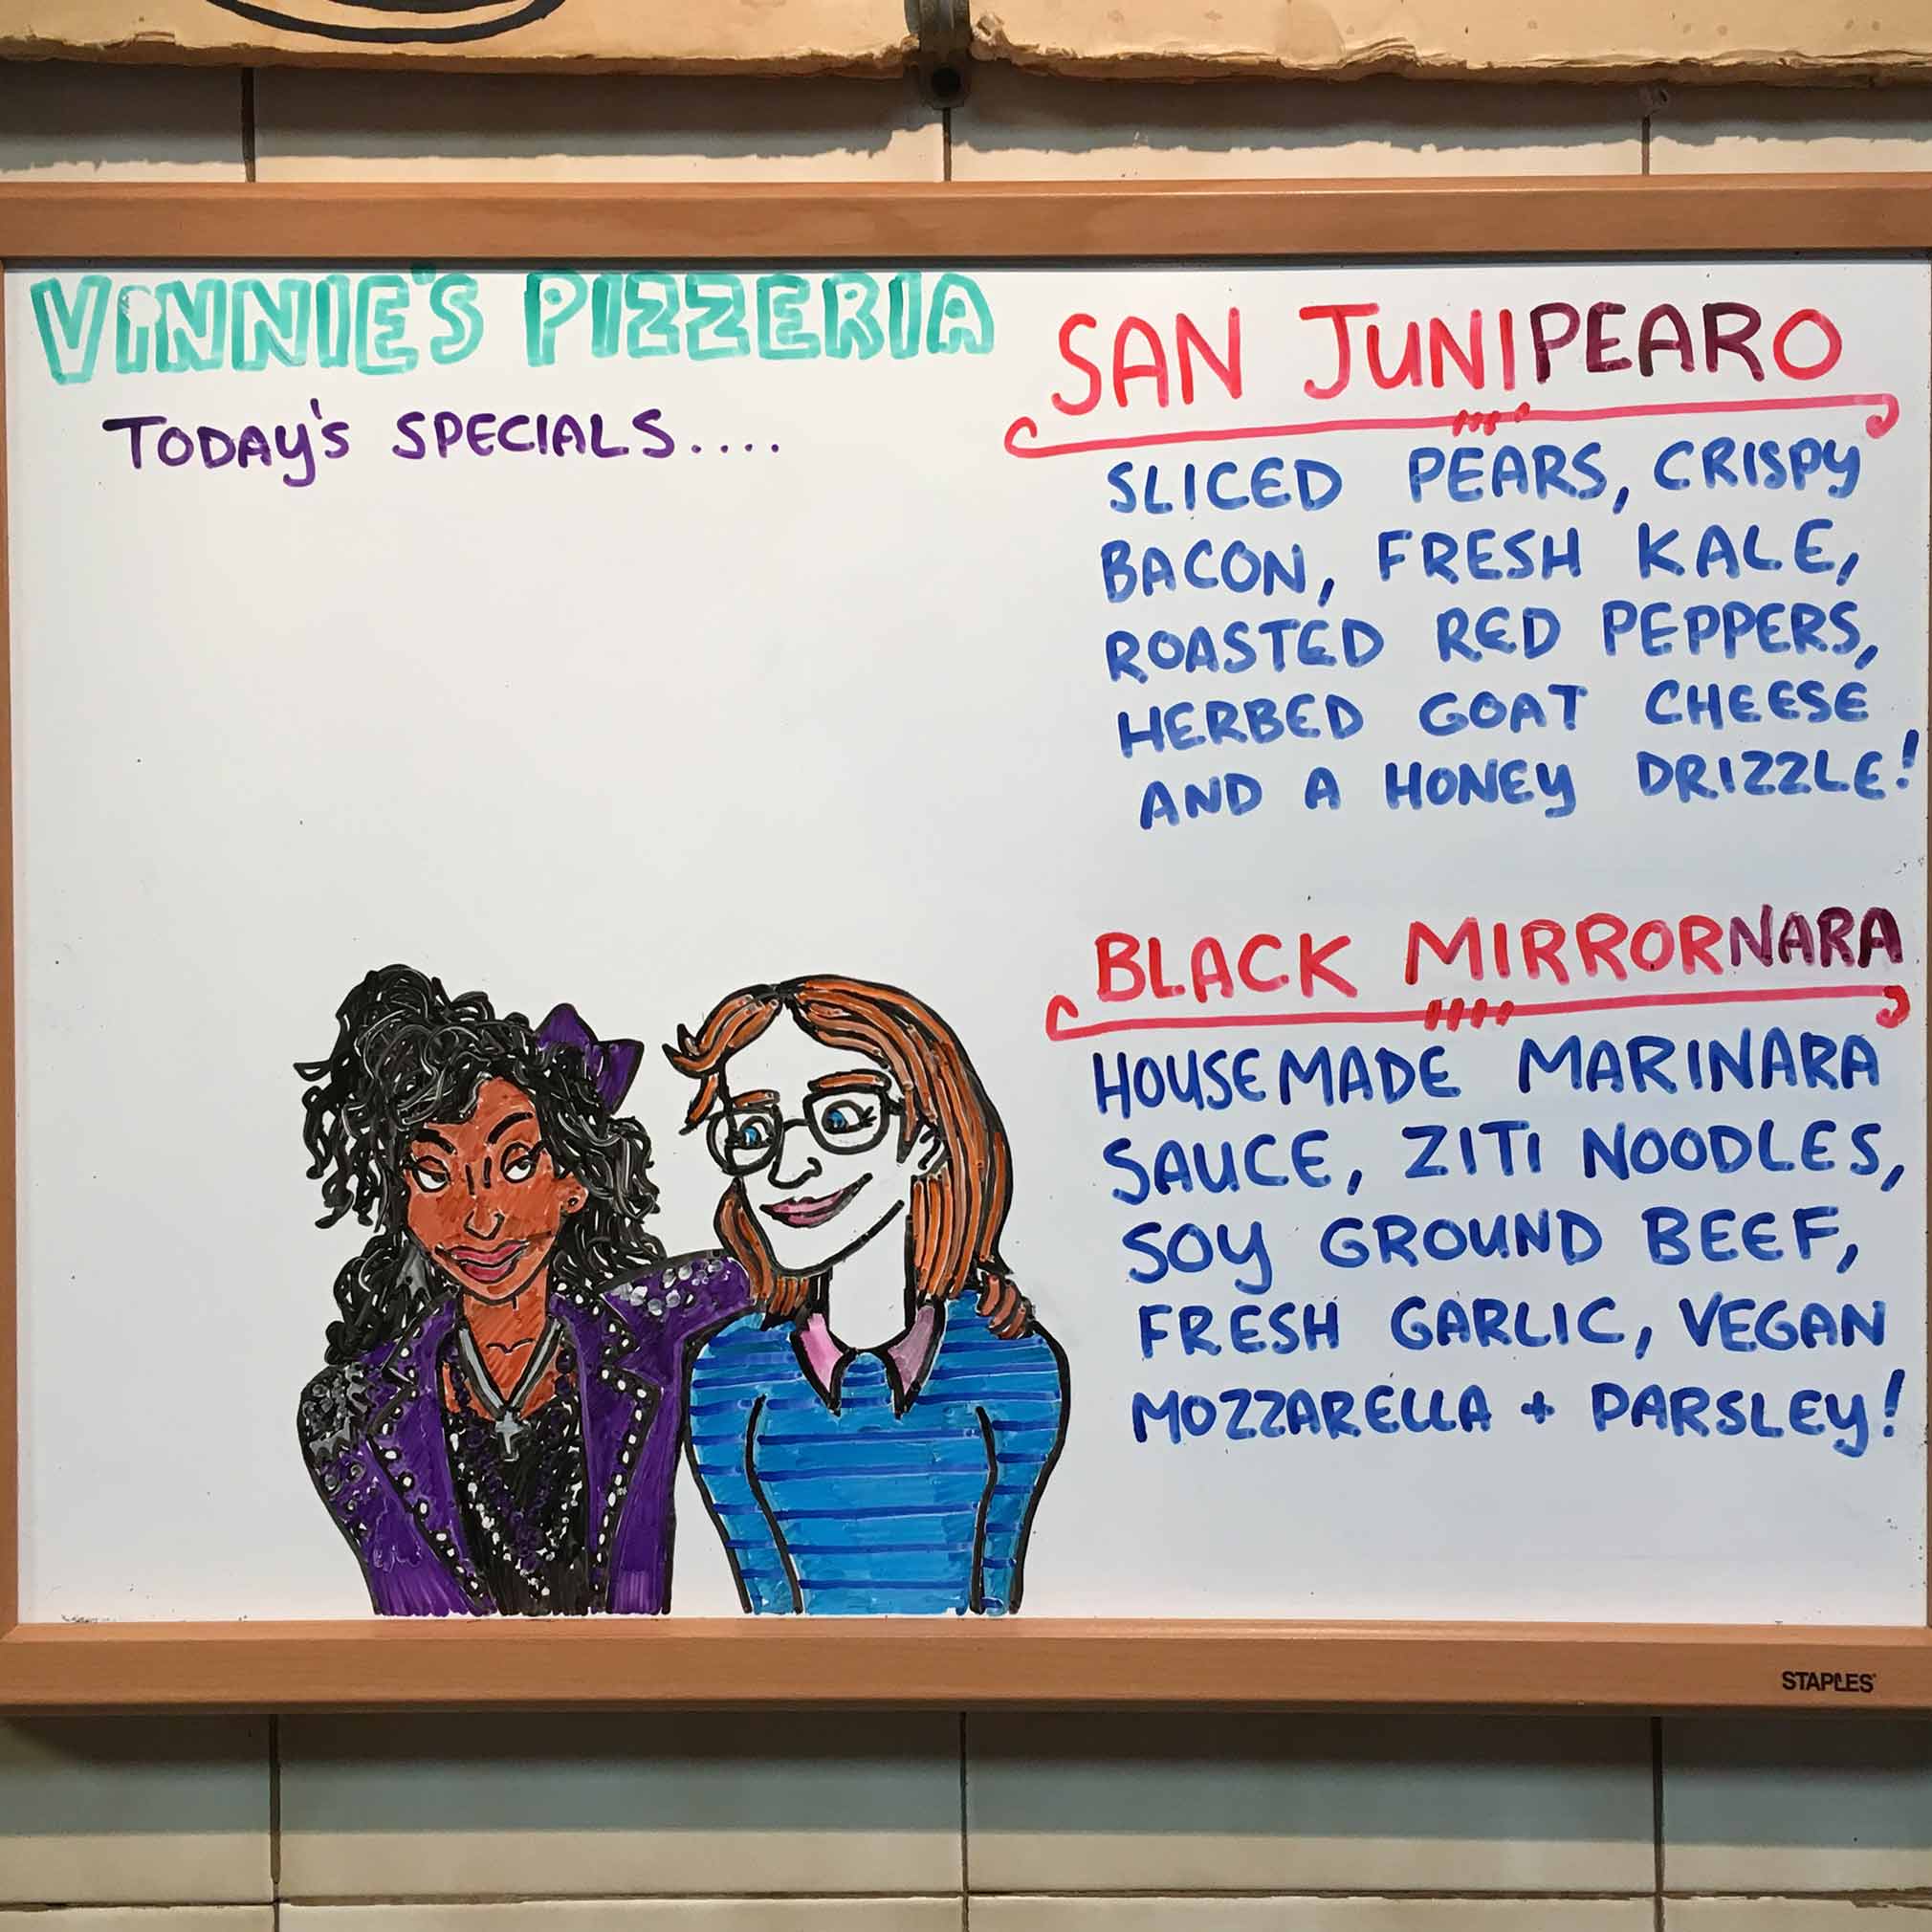 VINNIE'S PIZZERIA
TODAY'S SPECIALS....
SAN JUNIPEARO
SLICED PEARS, CRISPY
BACON, FRESH KALE,
ROASTED RED PEPPERS,
HERBED GOAT CHEESE
AND A HONEY DRIZZLE!
BLACK MIRRORNARA
HOUSEMADE MARINARA
SAUCE, ZITI NOODLES,
SOY GROUND BEEF,
FRESH GARLIC, VEGAN
MOZZARELLA + PARSLEY!
STAPLES